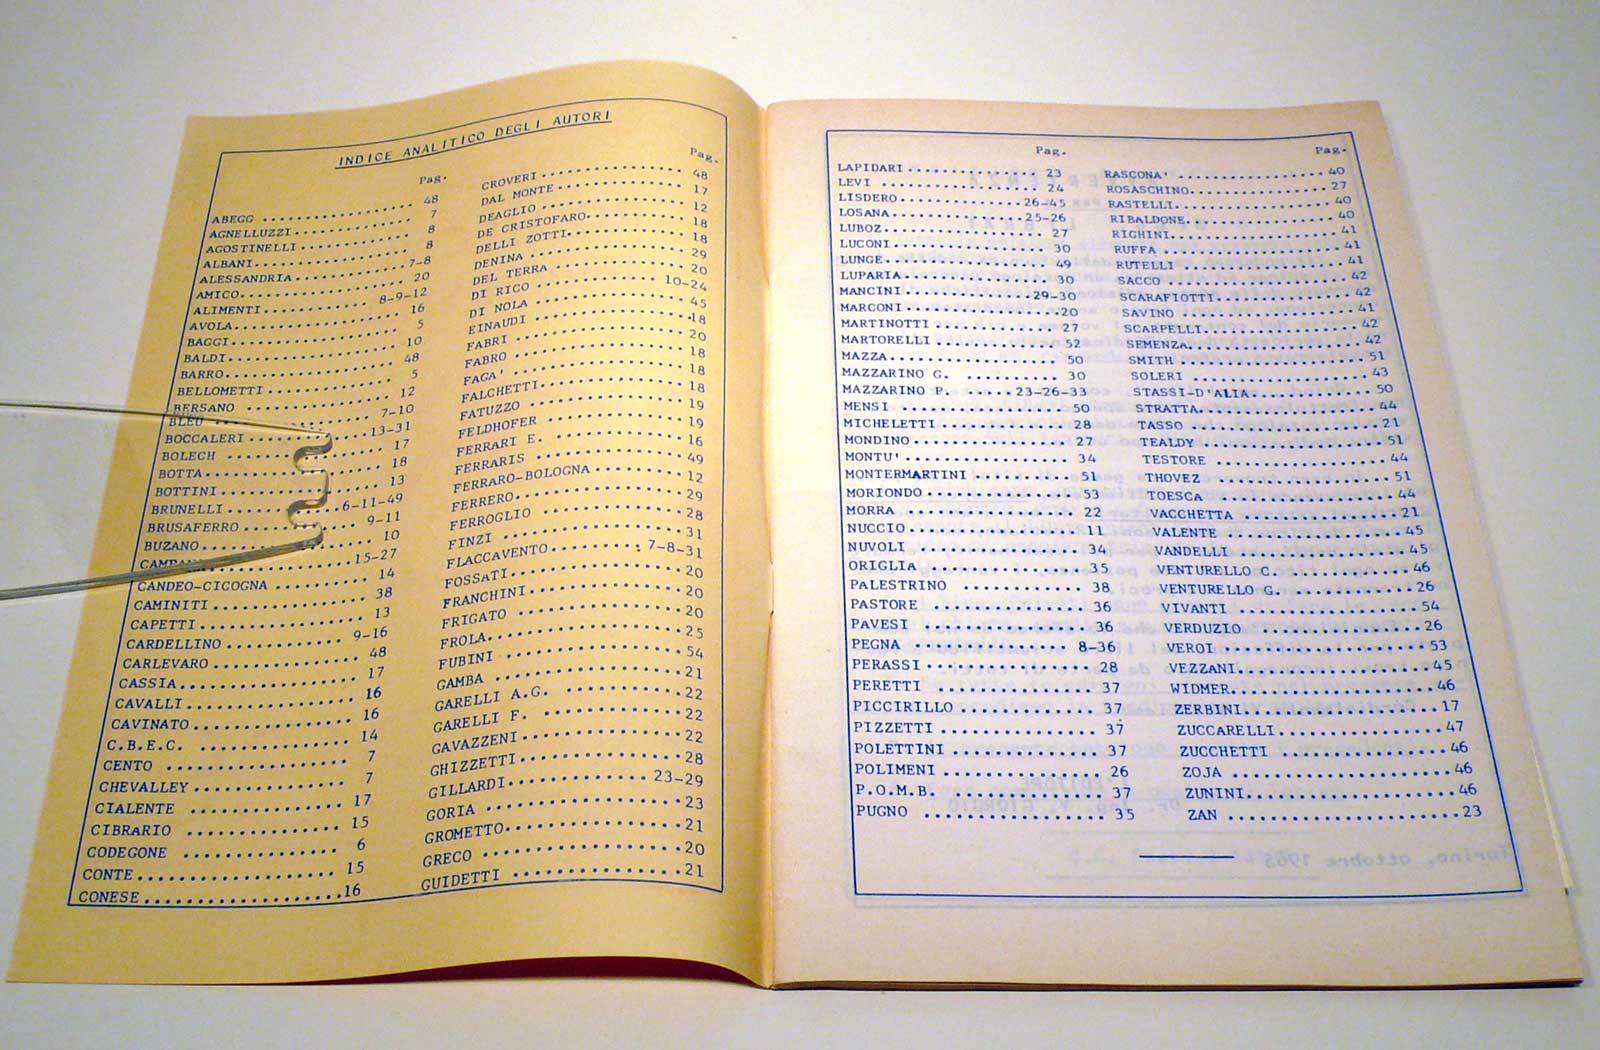 INDICE ANALITICO DEGLI AUTORI
Pag.
ABEGG ............ 48
AGNELLUZZI ............ 7
AGOSTINELLI ............ 8
ALBANI ............ 8
ALESSANDRIA ............ 7-8
AMICO ............ 20
ALIMENTI ............ 8-9-12
AVOLA ............ 16
BAGGI ............ 5
BALDI ............ 10
BARRO ............ 48
BELLOMETTI ............ 5
BERSANO ............ 12
BLEU ............ 7-10
BOCCALERI ............ 13-31
BOLECH ............ 17
BOTTA ............ 18
BOTTINI ............ 13
BRUNELLI ............ 6-11-49
BRUSAFERRO ............ 9-11
BUZANO ............ 10
............ 15-27
CANDEO-CICOGNA ............ 14
CAMINITI ............ 38
CAPETTI ............ 13
CARDELLINO ............ 9-16
CARLEVARO ............ 48
CASSIA ............ 17
CAVALLI ............ 16
CAVINATO ............ 16
C.B.E.C. ............ 14
CENTO ............ 7
CHEVALLEY ............ 7
CIALENTE ............ 17
CIBRARIO ............ 15
CODEGONE ............ 6
CONTE ............ 15
CONESE ............ 16
Pag.
CROVERI ............ 48
DAL MONTE ............ 17
DEAGLIO ............ 12
DE CRISTOFARO ............ 18
DELLI ZOTTI ............ 18
DENINA ............ 29
DEL TERRA ............ 20
DI RICO ............ 10-24
DI NOLA ............ 45
EINAUDI ............ 18
FABRI ............ 20
FABRO ............ 18
FAGA' ............ 18
FALCHETTI ............ 18
FATUZZO ............ 19
FELDHOFER ............ 19
FERRARI E. ............ 16
FERRARIS ............ 49
FERRARO-BOLOGNA ............ 12
FERRERO ............ 29
FERROGLIO ............ 28
FINZI ............ 31
FLACCAVENTO ............ 7-8-31
FOSSATI ............ 20
FRANCHINI ............ 20
FRIGATO ............ 20
FROLA ............ 25
FUBINI ............ 54
GAMBA ............ 21
GARELLI A.G. ............ 22
GARELLI F. ............ 22
GAVAZZENI ............ 22
GHIZZETTI ............ 28
GILLARDI ............ 23-29
GORIA ............ 23
GROMETTO ............ 21
GRECO ............ 20
GUIDETTI ............ 21
Pag.
LAPIDARI ............ 23
LEVI ............ 24
LISDERO ............ 26-45
LOSANA ............ 25-26
LUBOZ ............ 27
LUCONI ............ 30
LUNGE ............ 49
LUPARIA ............ 30
MANCINI ............ 29-30
MARCONI ............ 20
MARTINOTTI ............ 27
MARTORELLI ............ 52
MAZZA ............ 50
MAZZARINO G. ............ 30
MAZZARINO P. ............ 23-26-33
MENSI ............ 50
MICHELETTI ............ 28
MONDINO ............ 27
MONTU' ............ 34
MONTERMARTINI ............ 51
MORIONDO ............ 53
MORRA ............ 22
NUCCIO ............ 11
NUVOLI ............ 34
ORIGLIA ............ 35
PALESTRINO ............ 38
PASTORE ............ 36
PAVESI ............ 36
PEGNA ............ 8-36
PERASSI ............ 28
PERETTI ............ 37
PICCIRILLO ............ 37
PIZZETTI ............ 37
POLETTINI ............ 37
POLIMENI ............ 26
P.O.M.B. ............ 37
PUGNO ............ 35
Pag.
RASCONA' ............ 40
ROSASCHINO ............ 27
RASTELLI ............ 40
RIBALDONE ............ 40
RIGHINI ............ 41
RUFFA ............ 41
RUTELLI ............ 41
SACCO ............ 42
SCARAFIOTTI ............ 42
SAVINO ............ 41
SCARPELLI ............ 42
SEMENZA ............ 42
SMITH ............ 51
SOLERI ............ 43
STASSI-D'ALIA ............ 50
STRATTA ............ 44
TASSO ............ 21
TEALDY ............ 51
TESTORE ............ 44
THOVEZ ............ 51
TOESCA ............ 44
VACCHETTA ............ 21
VALENTE ............ 45
VANDELLI ............ 45
VENTURELLO C. ............ 46
VENTURELLO G. ............ 26
VIVANTI ............ 54
VERDUZIO ............ 26
VEROI ............ 53
VEZZANI ............ 45
WIDMER ............ 46
ZERBINI ............ 17
ZUCCARELLI ............ 47
ZUCCHETTI ............ 46
ZOJA ............ 46
ZUNINI ............ 46
ZAN ............ 23